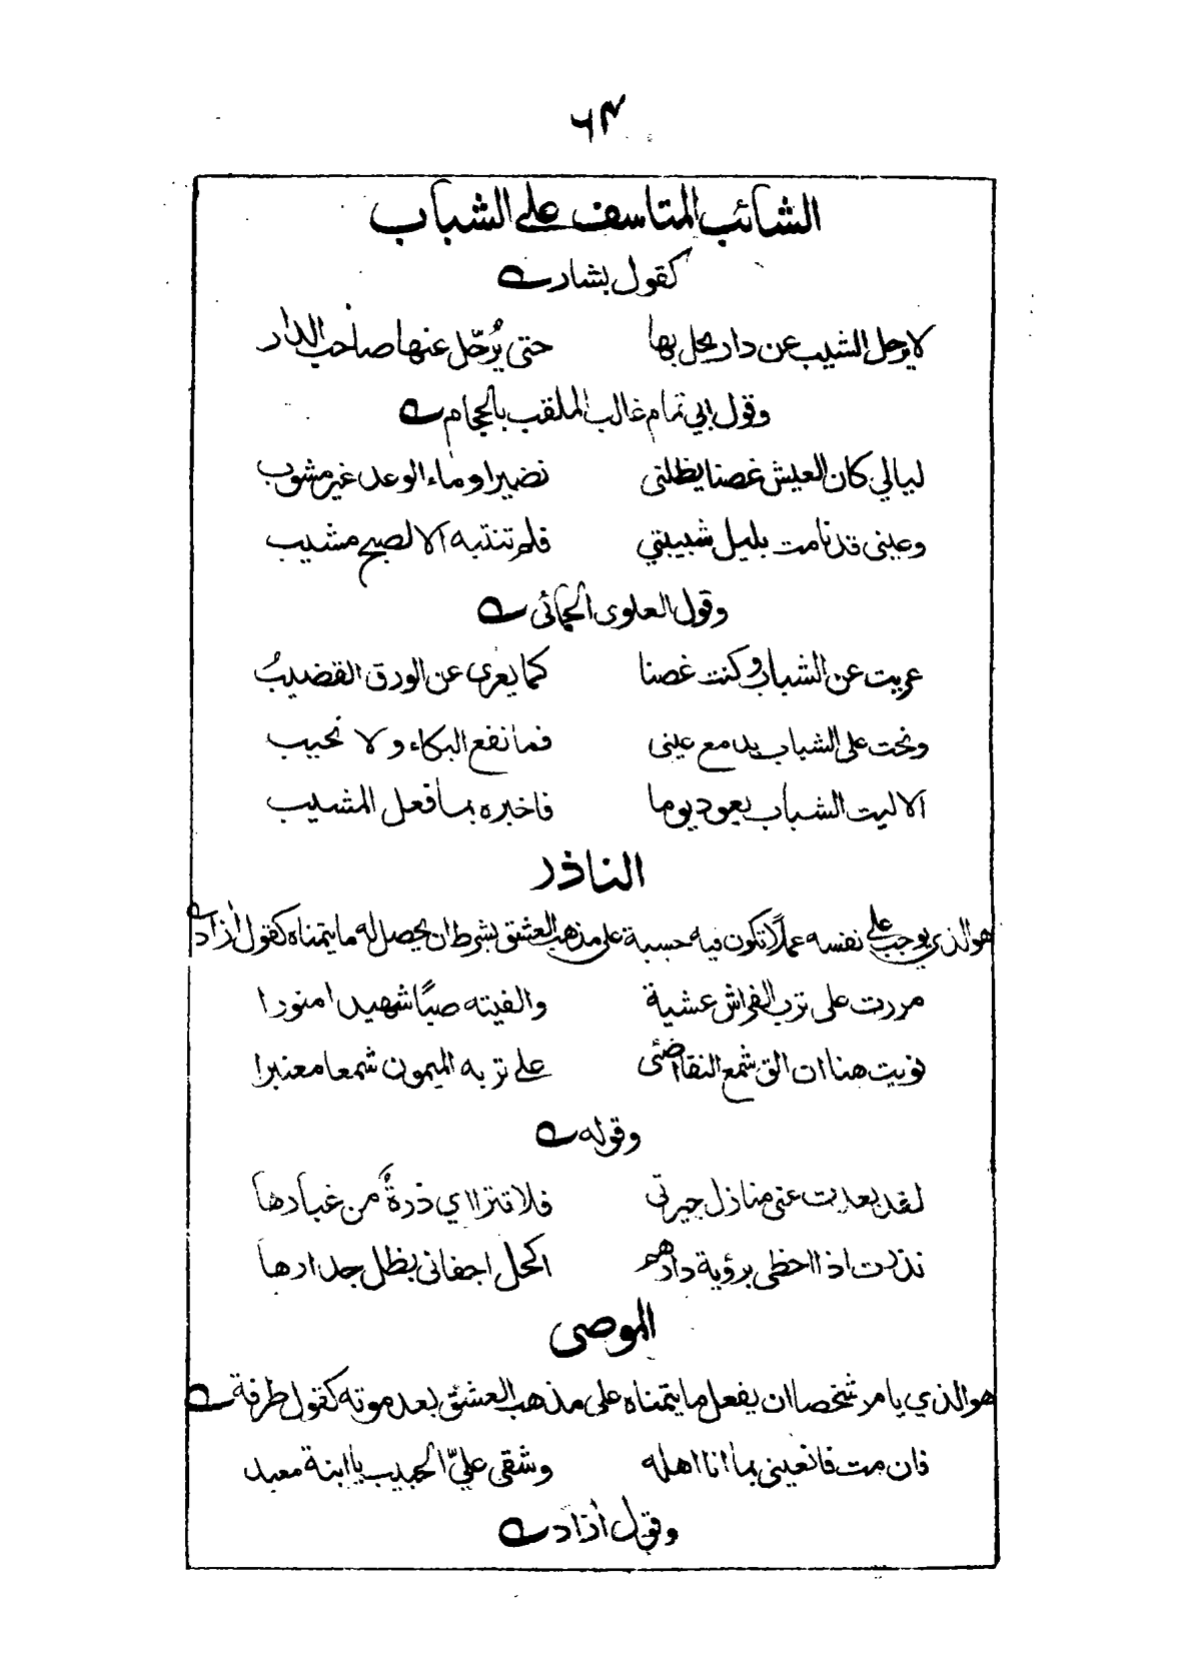 ٦٣
الشائب المتاسف على الشباب
كقول بشار
لا يرحل الشيب عن دار يحل بها حتى يُرحّل عنها صاحب الدار
وقول ابي تمام غالب الملقب بالحجام
ليالي كان العيش غصنا يظلنى نضيرا وماء الوعد غير مشوب
وعينى قد نامت بليل شبيبتي فلم تنتبه الا لصبح مشيب
وقول العلوى الحمائى
عريت عن الشباب وكنت غصنا كما يعرى عن الورق القضيبُ
ونحت على الشباب بدمع عينى فما نفع البكاء ولا نحيب
الا ليت الشباب يعود يوما فاخبره بما فعل المشيب
الناذر
هو الذي يوجب على نفسه عملًا تكون فيه حسبة على مذهب العشق بشرط ان يحصل له ما يتمناه كقول اٰزاد
مررت على ترب الفراش عشية والفيته صبًا شهيدا منورا
نويت هنا ان الق شمع النقا اضئى على تربه الميمون شمعا معنبرا
وقوله
لقد بعدت عنى منازل جيرتى فلا تترا اي ذرةٌ من غبارها
نذرت اذا احظى برؤية دارهم اكحل اجفانى بظل جدارها
الموصى
هو الذي يامر شخصا ان يفعل ما يتمناه على مذهب العشق بعد موته كقول طرفة
فان مت فانعينى بما انا اهله وشقى عليّ الجيب يا ابنة معبد
وقول اٰزاد